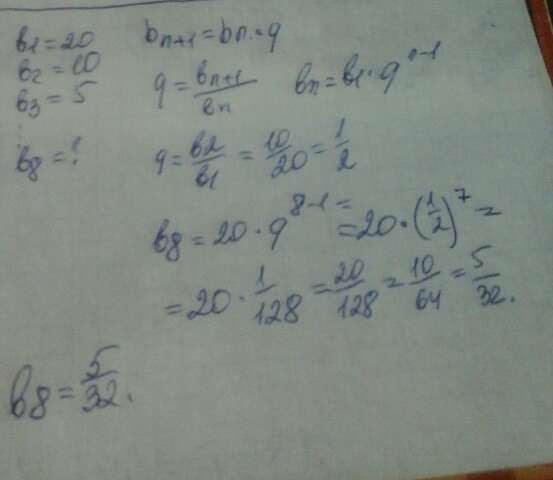 b₁ = 20
b₂ = 10
b₃ = 5
⋮
b₈ = ?
bₙ₊₁ = bₙ · q
q = bₙ₊₁/bₙ   bₙ = b₁ · qⁿ⁻¹
q = b₂/b₁ = 10/20 = 1/2
b₈ = 20 · q⁸⁻¹ = = 20 · (1/2)⁷ =
= 20 · 1/128 = 20/128 = 10/64 = 5/32.
b₈ = 5/32.